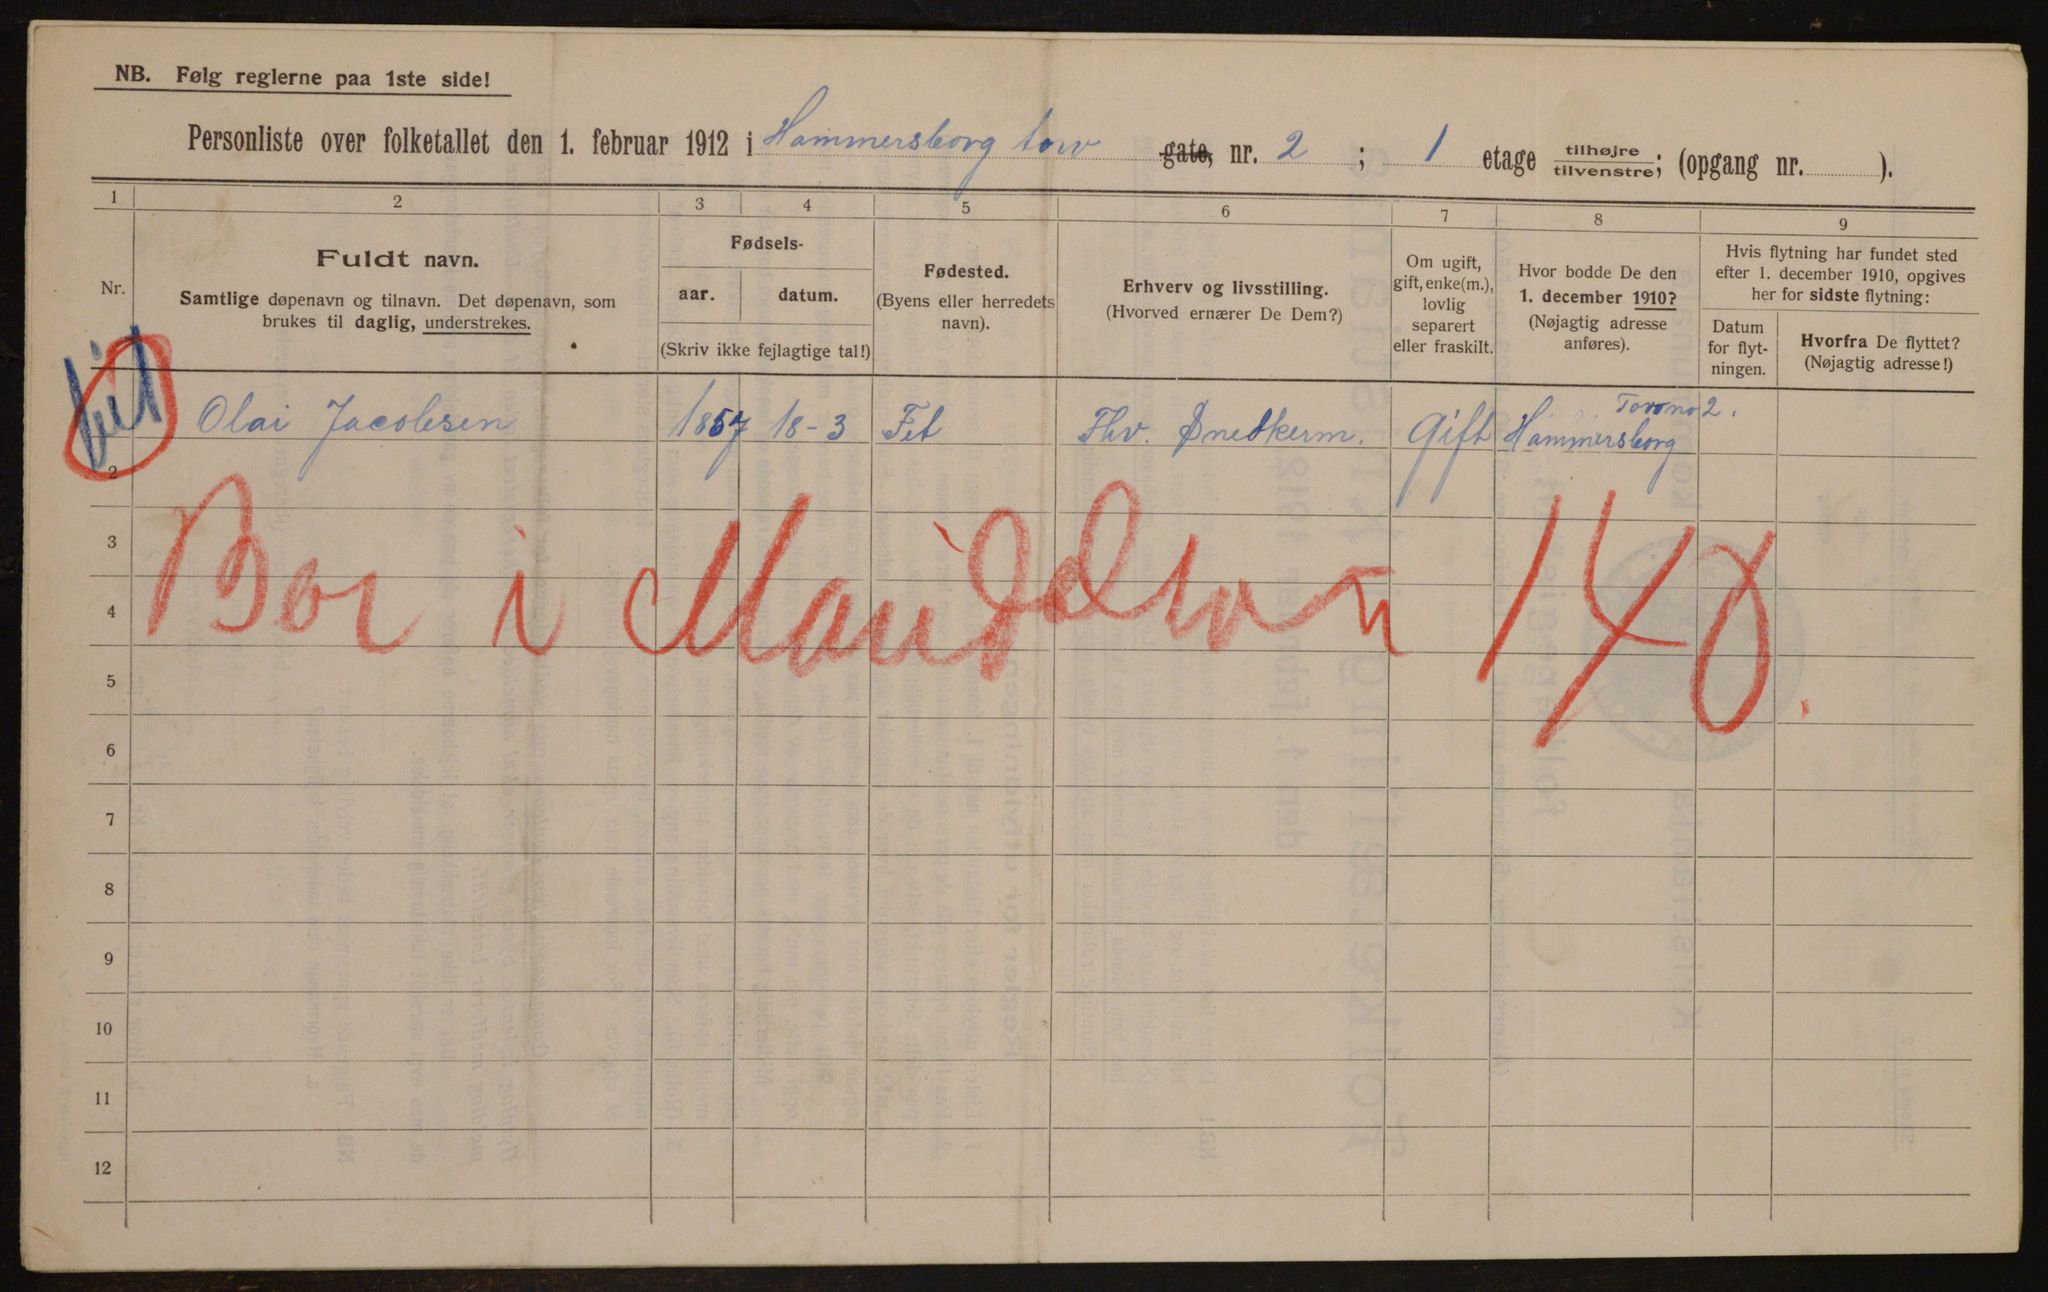 NB. Følg reglerne paa 1ste side!
Personliste over folketallet den 1. februar 1912 i Hammersborg torv gate, nr. 2 ; 1 etage tilhøjre tilvenstre; (opgang nr. ).
1 2 3 4 5 6 7 8 9
Nr.
Fuldt navn.
Samtlige døpenavn og tilnavn. Det døpenavn, som
brukes til daglig, understrekes.
Fødsels-
aar. datum.
(Skriv ikke fejlagtige tal!)
Fødested.
(Byens eller herredets
navn).
Erhverv og livsstilling.
(Hvorved ernærer De Dem?)
Om ugift,
gift, enke(m.),
lovlig
separert
eller fraskilt.
Hvor bodde De den
1. december 1910?
(Nøjagtig adresse
anføres).
Hvis flytning har fundet sted
efter 1. december 1910, opgives
her for sidste flytning:
Datum
for flyt-
ningen.
Hvorfra De flyttet?
(Nøjagtig adresse!)
Olai Jacobsen 1857 18-3 Fet Fhv. Snedkerm. Gift Hammersborg
Torv no 2.
2
Bor i 140.
3
4
5
6
7
8
9
10
11
12